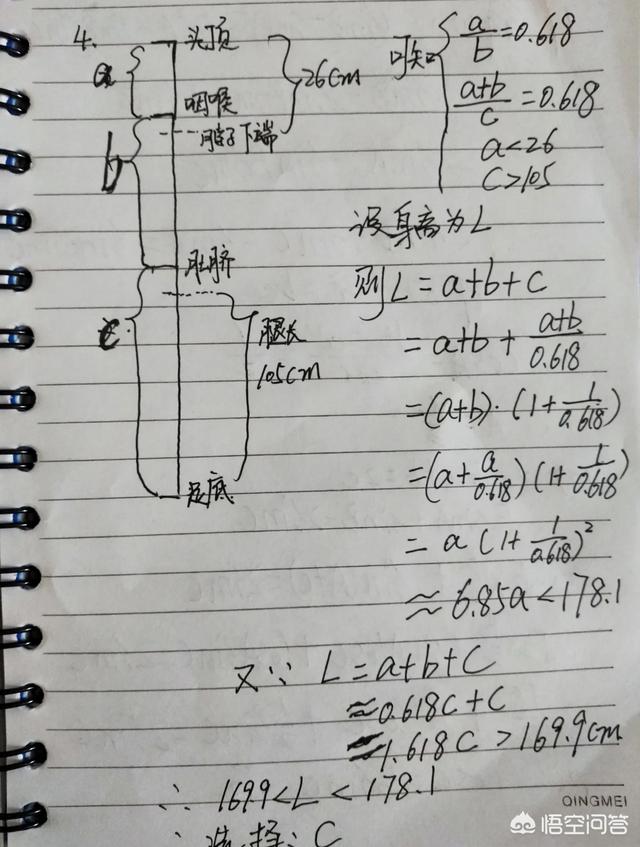 4.
头顶
a
26cm
咽喉
脖子下端
b
肚脐
c
腿长
105cm
足底
可知
a/b=0.618
a+b/c=0.618
a<26
c>105
设身高为L
则L=a+b+c
=a+b+a+b/0.618
=(a+b)·(1+1/0.618)
=(a+a/0.618)(1+1/0.618)
=a(1+1/0.618)²
≈6.85a<178.1
又∵ L=a+b+c
≈0.618c+c
=1.618c>169.9cm
∴ 169.9<L<178.1
∴ 选择:C
QINGMEI
悟空问答